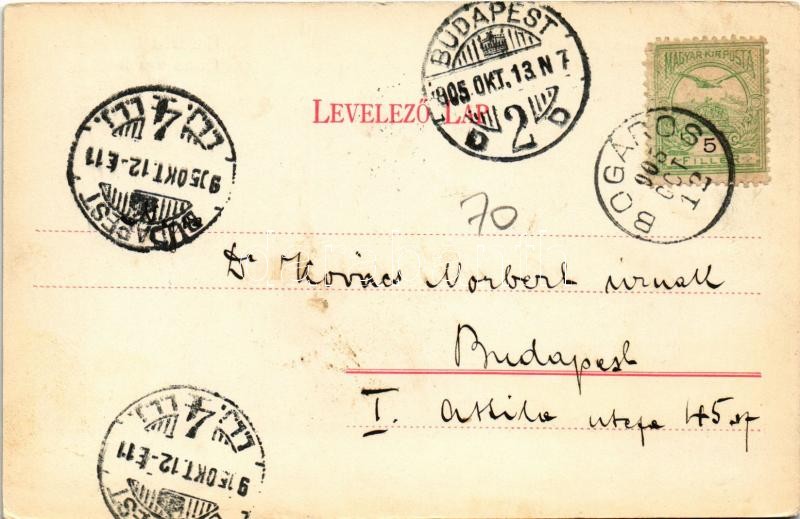 BUDAPEST
905 OKT. 13 N 7
D 2 D
MAGYAR KIR. POSTA
5
FILLÉR
BOGÁROS
905
OCT
12
LEVELEZŐ LAP
BUDAPEST
905 OKT. 12-É11
4
70
Dr Kovács Norbert úrnak
Budapest
I. Attila utcza 45. sz
BUDAPEST
905 OKT. 12-É11
4